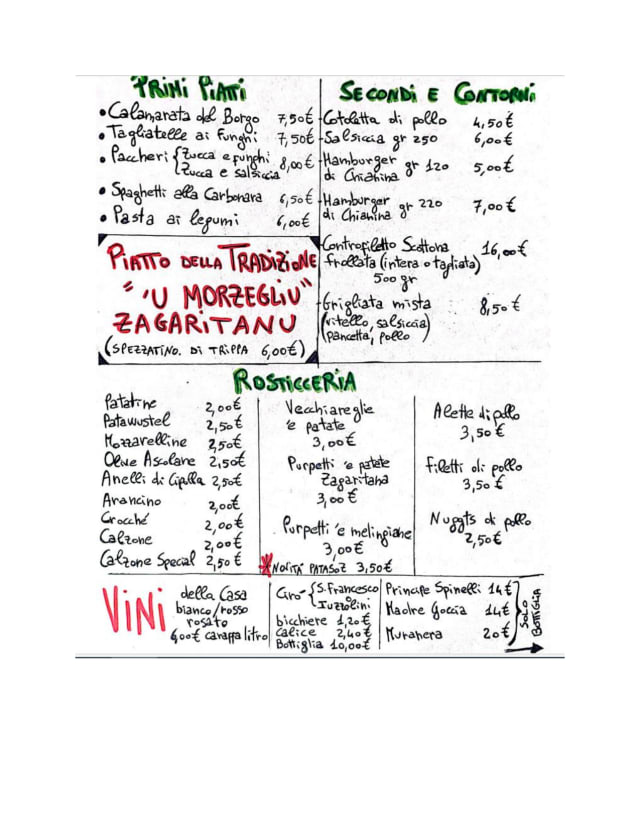 PRIMI PIATTI
• Calamarata del Borgo 7,50€
• Tagliatelle ai funghi 7,50€
• Paccheri {Zucca e funghi 8,00€
{Zucca e salsiccia
• Spaghetti alla Carbonara 6,50€
• Pasta ai legumi 6,00€
PIATTO DELLA TRADIZIONE
"'U MORZEGLIU"
ZAGARITANU
(SPEZZATINO. DI TRIPPA 6,00€)
SECONDI E CONTORNI
-Cotoletta di pollo 4,50€
-Salsiccia gr 250 6,00€
-Hamburger gr 120 5,00€
di Chianina
-Hamburger gr 220 7,00€
di Chianina
-Controfiletto Scottona 16,00€
frollata (intera o tagliata)
500 gr
-Grigliata mista 8,50€
(vitello, salsiccia)
(pancetta, pollo)
ROSTICCERIA
Patatine 2,00€
Patawustel 2,50€
Mozzarelline 2,50€
Olive Ascolane 2,50€
Anelli di Cipolla 2,50€
Arancino 2,00€
Crocché 2,00€
Calzone 2,00€
Calzone Special 2,50€
Vecchiareglie
'e patate
3,00€
Purpetti 'e patate
Zagaritana
3,00€
Purpetti 'e melingiane
3,00€
*NOVITA' PATASOZ 3,50€
Alette di pollo
3,50€
filetti di pollo
3,50€
Nuggts di pollo
2,50€
VINI
della Casa
bianco/rosso
rosato
4,00€ caraffa litro
Ciro- {S. Francesco
{Iuzzolini
bicchiere 1,20€
Calice 2,40€
Bottiglia 10,00€
Principe Spinelli 14€
Madre Goccia 14€
Muranera 20€
SOLO
BOTTIGLIA